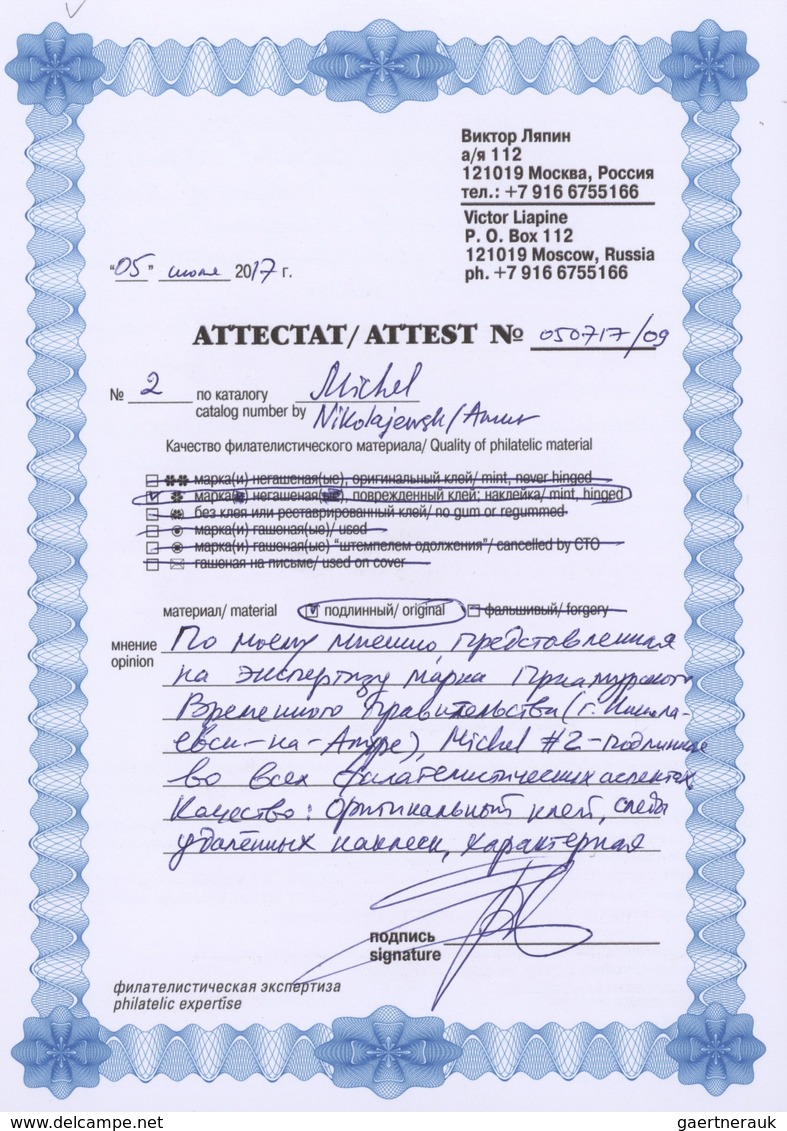 Виктор Ляпин
а/я 112
121019 Москва, Россия
тел.: +7 916 6755166
Victor Liapine
P. O. Box 112
121019 Moscow, Russia
ph. +7 916 6755166
"05" июля 2017 г.
АТТЕСТАТ/ ATTEST № 050717/09
№ 2 по каталогу Michel
catalog number by Nikolajewsk/Amur
Качество филателистического материала/ Quality of philatelic material
марка(и) негашеная(ые), оригинальный клей/ mint, never hinged
марка негашеная, поврежденный клей; наклейка/ mint, hinged
без клея или реставрированный клей/ no gum or regummed
марка(и) гашеная(ые)/ used
марка(и) гашеная(ые) "штемпелем одолжения"/ cancelled by CTO
гашеная на письме/ used on cover
материал/ material подлинный/ original фальшивый/ forgery
мнение По моему мнению, представленная
opinion на экспертизу марка Приамурского
Временного правительства (г. Никола-
евск-на-Амуре), Michel #2-подлинная
во всех филателистических аспектах.
Качество: Оригинальный клей, следы
удалённых наклеек, характерная
подпись
signature
филателистическая экспертиза
philatelic expertise
www.delcampe.net
gaertnerauk